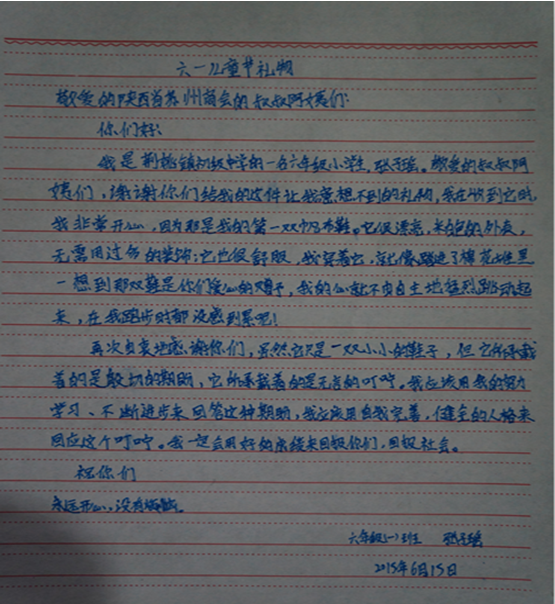 六一儿童节礼物
敬爱的陕西省苏州商会的叔叔阿姨们:
你们好!
我是荆姚镇初级中学的一名六年级小学生,张子瑶。敬爱的叔叔阿
姨们,谢谢你们给我的这件让我意想不到的礼物,我在收到它时,
我非常开心,因为那是我的第一双帆布鞋。它很漂亮,米色的外表,
无需用过多的装饰;它也很舒服,我穿着它,就像踏进了棉花堆里
一想到那双鞋是你们爱心的赠予,我的心就不由自主地猛烈跳动起
来,在我跑步时都没感到累呢!
再次由衷地感谢你们,虽然它只是一双小小的鞋子,但它所承载
着的是殷切的期盼,它所承载着的是无言的叮咛。我应该用我的努力
学习、不断进步来回答这种期盼,我应该用自我完善,健全的人格来
回应这个叮咛。我一定会用好的成绩来回报你们,回报社会。
祝你们
永远开心,没有烦恼。
六年级(一)班 张子瑶
2015年6月15日